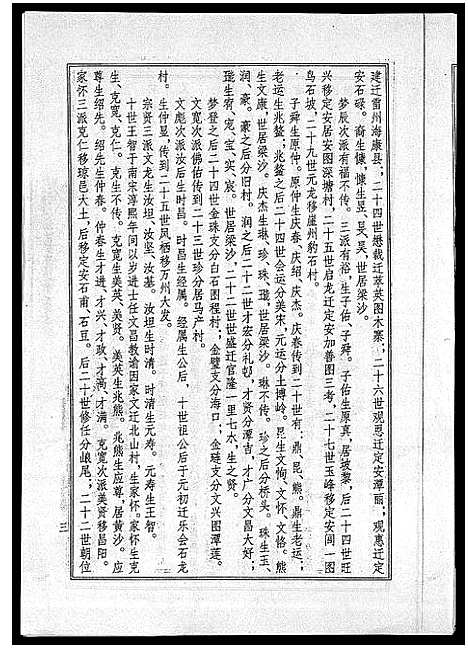 建迁雷州海康县；二十四世懋裁迁莘英图木寨；二十六世观恩迁定安潭丽；观惠迁定
安石碌。裔生慷，慷生昱、昊、吴，世居梁沙。
梦辰次派有福不传。三派有裕，生子佑、子舜。子佑生原真，居坡黎，后二十四世旺
兴移定安居安图深塘村，二十五世启龙迁定安加善图三考，二十七世玉峰移定安间一图
乌石坡。二十九世元龙移崖州豹石村。
子舜生原仲。原仲生庆春、庆绍、庆杰。庆春传到二十世有：鼎、昆、熊。鼎生老运；
老运生兆鳌；兆鳌之后二十四世会运分美宋，元运分土博岭。昆生文恂、文怀、文恪。熊
生文康，世居梁沙。庆杰生琳、珍、珠、璇，世居梁沙。琳不传。珍之后分桥头。珠生玉、
润、豪。豪之后分旧村。润之后二十二世才宏分礼邨，才贤分潭吉，才广分文昌大好；
璇生宥、宠、宝、实、宸。世居梁沙，二十二世世盛迁官隆一里七水，生之贤。
梦登之后二十四世金珠支分白石图程村；金璧支分海口；金琏支分文兴图潭莲。
文宽次派佛佑传到二十三世珍分居马六村。
文彪次派汝后生时昌。时昌生经属。经属生公后，十世祖公后于元初迁乐会石龙
村。
生仲显，传到二十五世凤栖移万州大发。
宗贤三派文龙生汝坦、汝坚、汝基。汝坦生时清。时清生元寿。元寿生王智。
十世王智于南宋淳熙年间以岁进士任文昌教谕因家文迁北山村，生家怀。家怀生克
生、克宽、克仁。克生不传。克宽生美英、美贤。美英生兆熊。兆熊生应尊，居黄沙。应
尊生绍先。绍先生仲春。仲春生才进、才兴、才政、才满、才满。克宽次派美贤移昌阳。
家怀三派克仁移琼邑大土，后移定安石甫、石豆。后二十世修任分崀尾；二十二世朝位
三